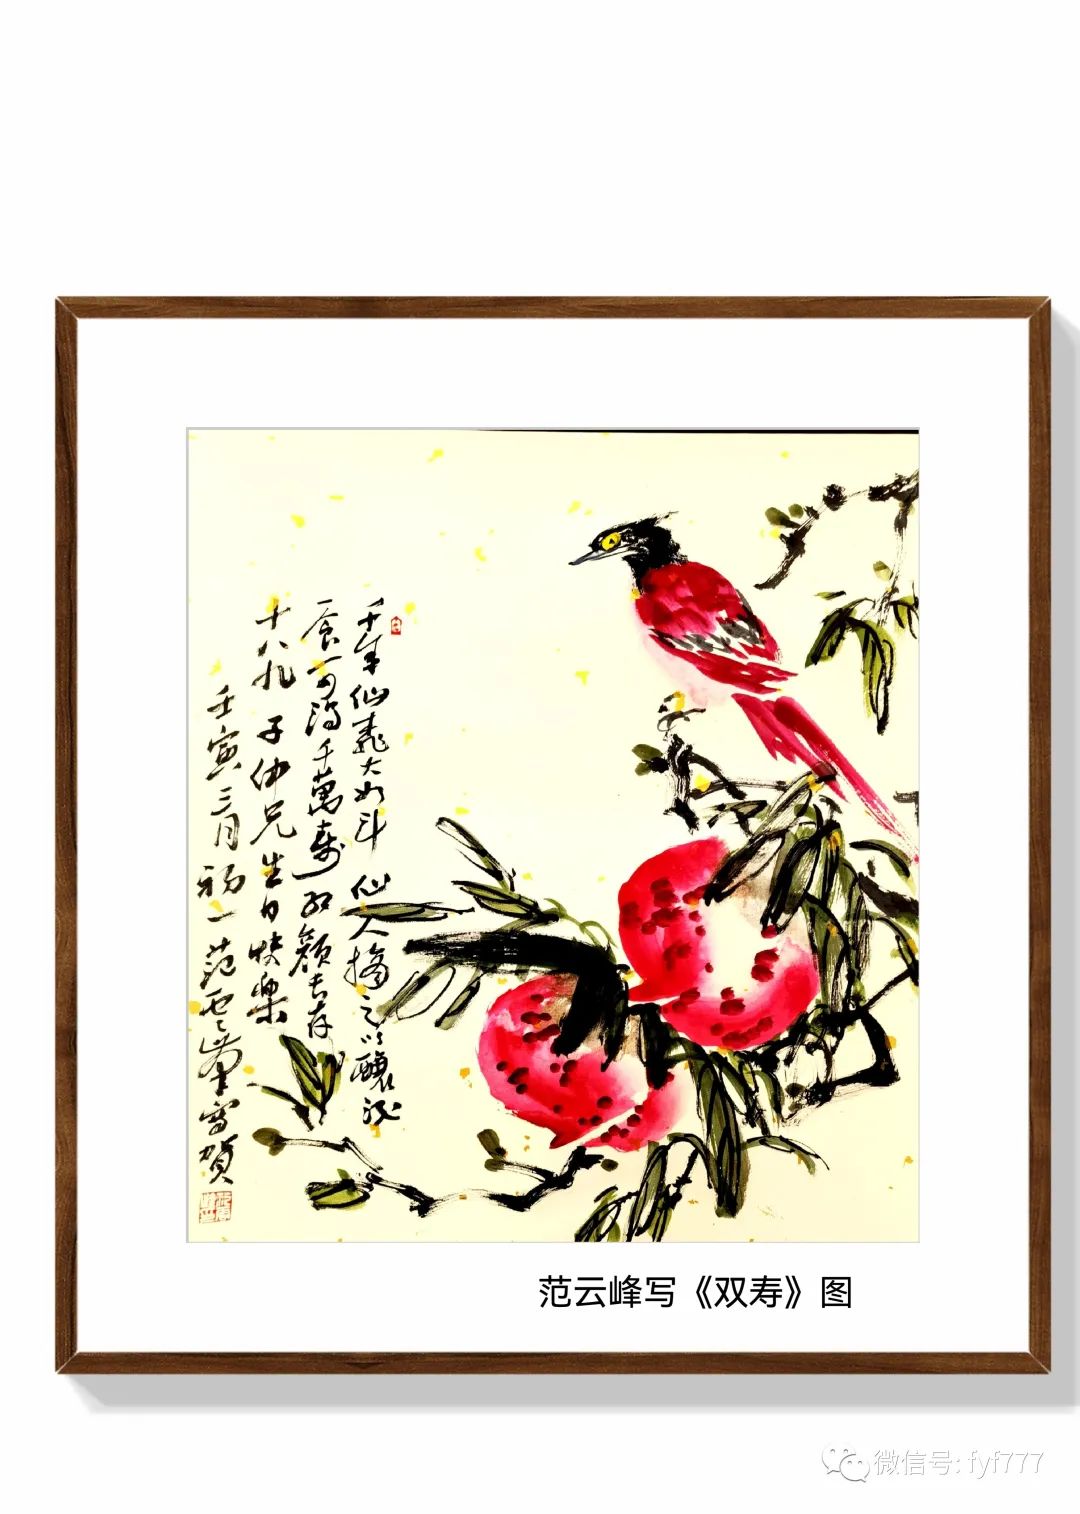 千年仙桃大如斗 仙人摘之以釀酒
一食可得千萬壽 紅顏長存
十八九 子仲兄生日快樂
壬寅三月初一范雲峯寫賀
范云峰写《双寿》图
微信号: fyf777